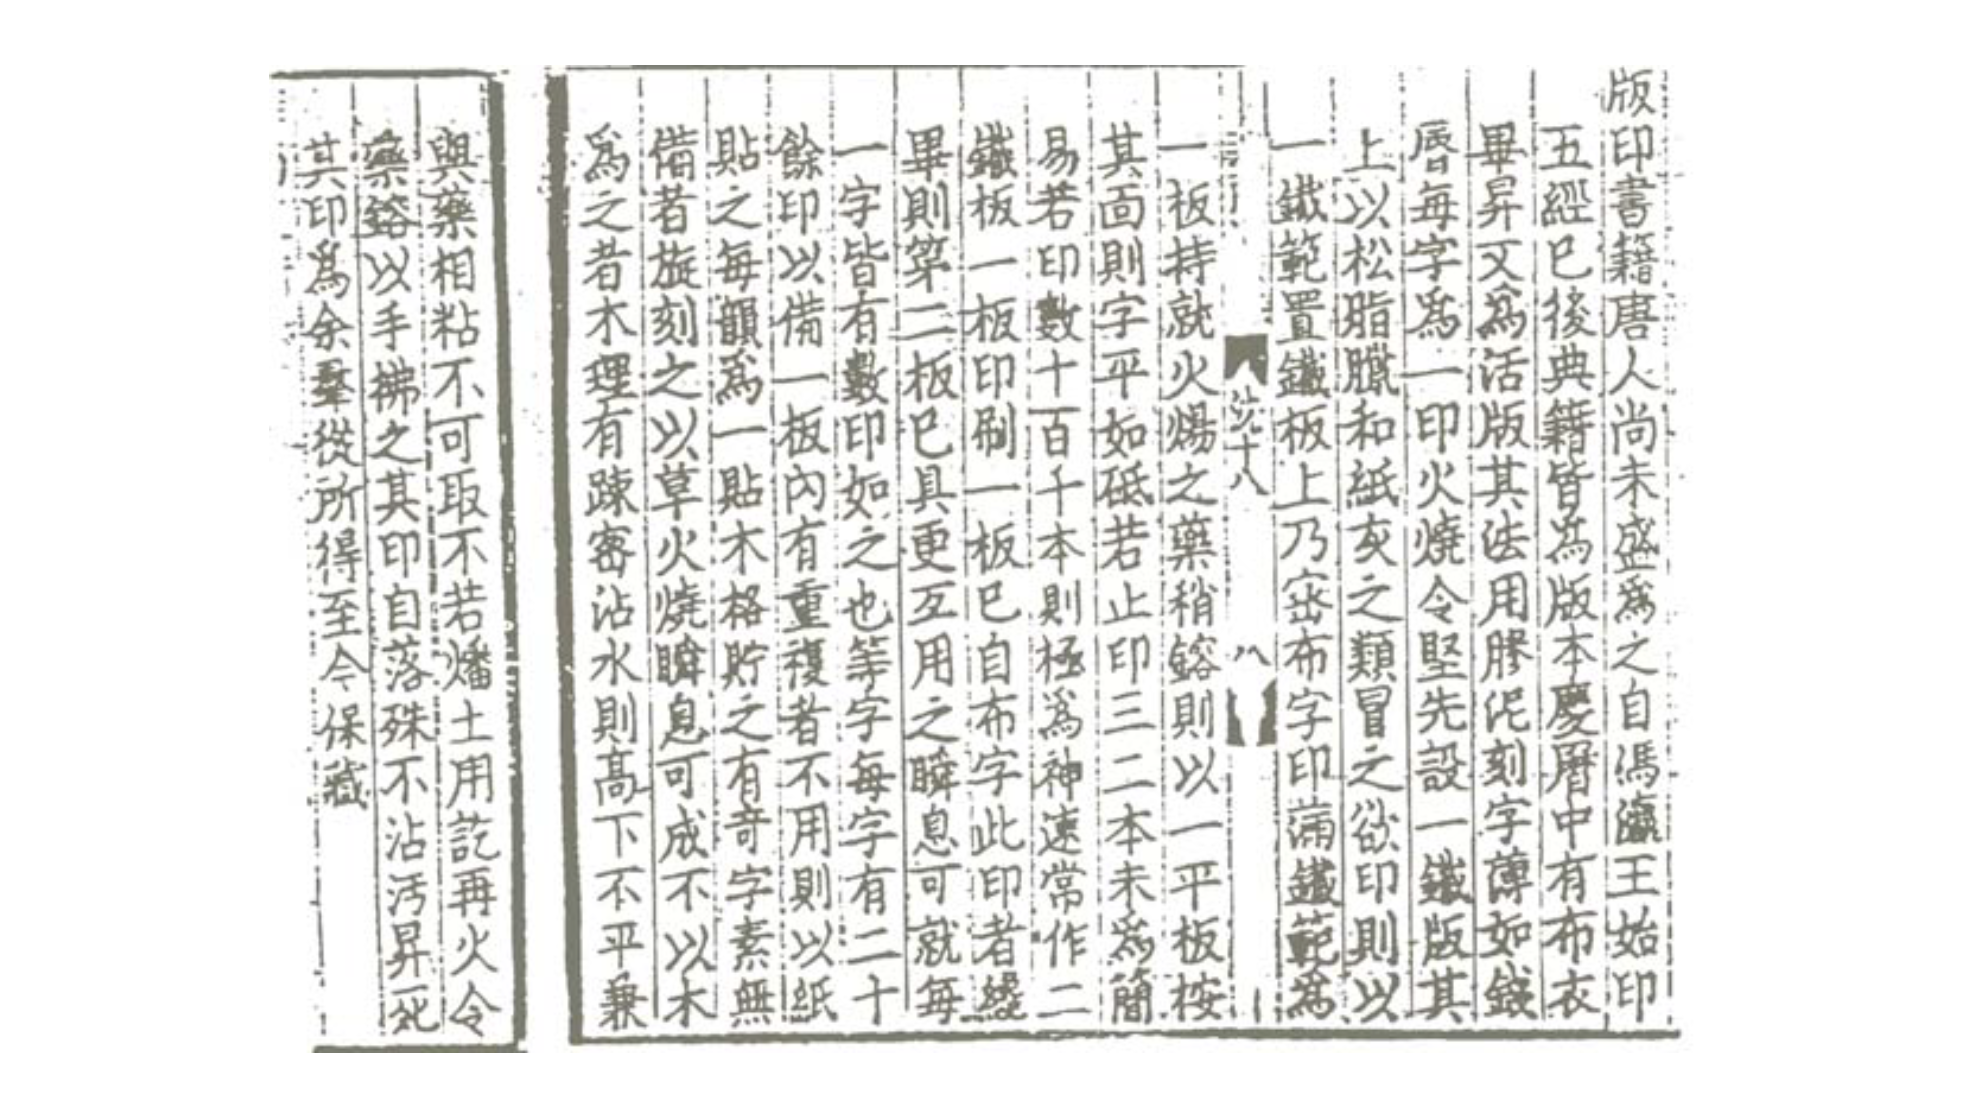 版印書籍唐人尚未盛為之自馮瀛王始印
五經已後典籍皆為版本慶曆中有布衣
畢昇又為活版其法用膠泥刻字薄如錢
唇每字為一印火燒令堅先設一鐵版其
上以松脂臘和紙灰之類冒之欲印則以
一鐵範置鐵板上乃密布字印滿鐵範為
筆十八
八
一板持就火煬之藥稍鎔則以一平板按
其面則字平如砥若止印三二本未為簡
易若印數十百千本則極為神速常作二
鐵板一板印刷一板已自布字此印者纔
畢則第二板已具更互用之瞬息可就每
一字皆有數印如之也等字每字有二十
餘印以備一板內有重複者不用則以紙
貼之每韻為一貼木格貯之有奇字素無
備者旋刻之以草火燒瞬息可成不以木
為之者木理有踈密沾水則高下不平兼
與藥相粘不可取不若燔土用訖再火令
藥鎔以手拂之其印自落殊不沾汚昇死
其印為余羣從所得至今保藏